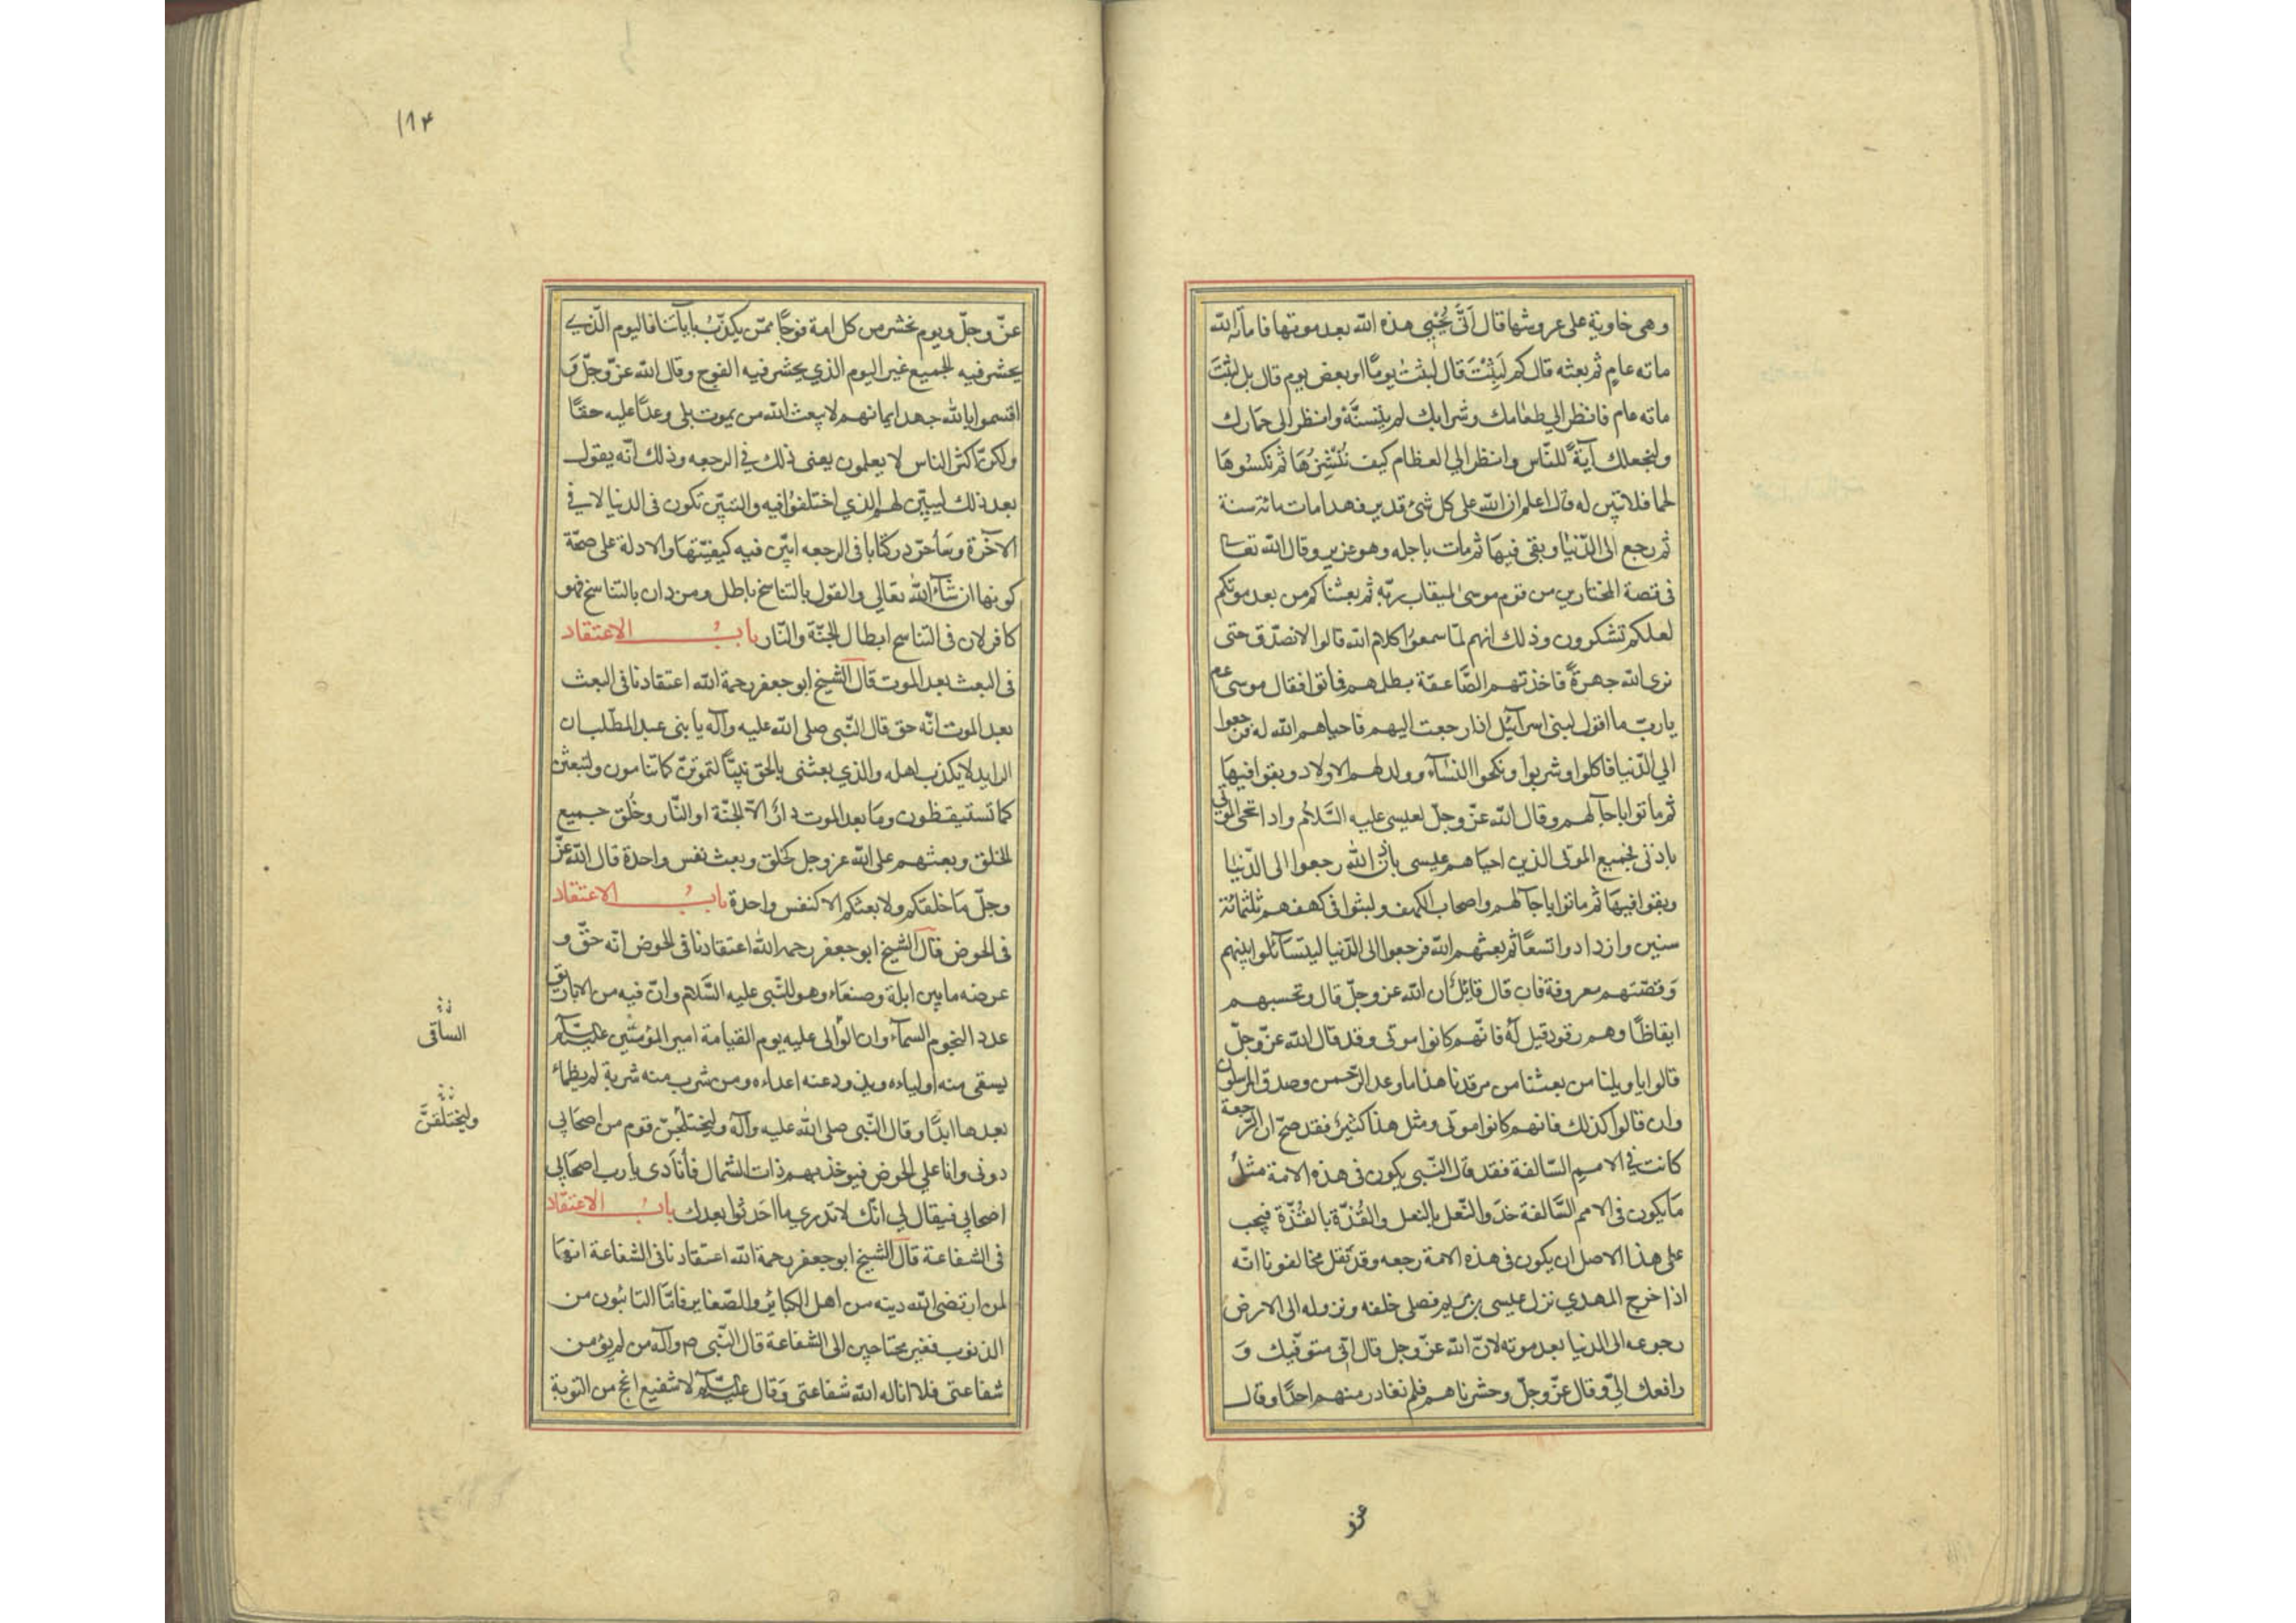 وهى خاوية على عروشها قال اَنّى يُحْيِى هذه الله بعد موتها فاماته الله
مائه عامٍ ثم بعثه قال كم لَبِثْتَ قال لبثتُ يومًا او بعض يوم قال بل لبثتَ
مائه عام فانظر الي طعامك وشرابك لم يتَسنَّهْ وانظر الى حمارك
ولنجعلك آيةً للنّاس وانظر الي العظام كيف نُنْشِزُهَا ثم نكسُوها
لحما فلما تبيّن له قال اعلم ان الله على كل شئ قدير فهذا مات مائة سنة
ثم رجع الى الدّنيا وبقى فيها ثم مات باجله وهو عزير وقال الله تعالى
فى قصة المختارين من قوم موسىٰ لميقات ربّه ثم بعثناكم من بعد موتكم
لعلكم تشكرون وذلك انهم لمّا سمعوُا كلام الله قالوا لانصدّق حتى
نرى الله جهرةً فاخذتهم الصّاعقة بظلمهم فماتوا فقال موسى عم
يا ربّ ما اقول لبنى اسرآئيل اذا رجعت اليهم فاحياهم الله له فرجعوا
الي الدّنيا فاكلوا وشربوا ونكحوا النسآء وولد لهم الاولاد وبقوا فيها
ثم ماتوا باجآلهم وقال الله عزّ وجلّ لعيسى عليه السَّلام واذ تحى الموتى
باذنى فجميع الموتى الذين احياهم عيسى باذن الله رجعوا الى الدّنيا
وبقوا فيها ثم ماتوا باجآلهم واصحاب الكهف ولبثوا فى كهفهم ثلثمائة
سنين وازدادوا تسعًا ثم بعثهم الله فرجعوا الى الدّنيا ليتسآئلوا بينهم
وَقصّتهم معروفة فان قال قائل ان الله عز وجلّ قال وتحسبهم
ايقاظًا وهم رقود قيل لَهُ فانّهم كانوا موتى وقد قال الله عزّ وجلّ
قالوا يا ويلنا من بعثنا من مرقدنا هذا ما وعد الرّحمن وصدق المرسلون
وان قالوا كذلك فانهم كانوا موتى ومثل هذا كثيرٌ فقد صحّ ان الرّجعة
كانت فِي الامم السّالفة فقد قال النّبى يكون فى هذه الامة مثلُ
مَا يكون فى الامم السَّالفة حذو النّعل بالنعل والقُذّة بالقُذّة فيجب
على هذا الاصل ان يكون فى هذه الامة رجعه وقد نقل مخالفونا انّه
اذا خرج المهدي نزل عيسى بن مريم فصلى خلفه ونزوله الى الارض
رجوعه الى الدنيا بعد موته لانّ الله عزّ وجل قال انّى متوفّيك وَ
رافعك الىّ وقال عزّ وجلّ وحشرناهم فلم نغادر منهم احدًا وقال
عزّ
١٨٤
عزّ وجلّ ويوم نحشر من كل امة فوجًا ممّن يكذّبُ باياتنا فاليوم الّذي
يحشر فيه الجميع غير اليوم الذي يحشر فيه الفوج وقال الله عزّ وجلّ وَ
اقسموا بالله جهد ايمانهم لا يبعث الله من يموت بلى وعدًا عليه حقّا
ولكنّ اكثر الناس لا يعلمون يعنى ذلك فِي الرجعه وذلك انّه يقول
بعد ذلك ليبيّن لهم الذي اختلفوُا فيه والتبيّن تكون فى الدنيا لا فِي
الآخرة وسَأجرّد كتابا فى الرجعه ابيّن فيه كيفيّتها والادلة على صحّة
كونها ان شآء الله تعالي والقول بالتناسخ باطل ومن دان بالتناسخ فهو
كافر لان فى التناسخ ابطال الجنّة والنّار بابُ الاعتقاد
فى البعث بعد الموت قال الشّيخ ابو جعفر رحمة الله اعتقادنا فى البعث
بعد الموت انّه حق قال النّبى صلى الله عليه وآله يا بنى عبد المطّلب ان
الرايد لا يكذب اهله والذي بعثنى بالحق نبيًّا لتموتنّ كما تنامون ولتبعثن
كما تستيقظون ومَا بعد الموت دارٌ الاّ الجنّة او النّار وخُلق جميع
الخلق وبعثهم على الله عز وجل كخلق وبعث نفس واحدة قال الله عزّ
وجلّ مَا خلقكم ولا بعثكم الا كنفس واحدة بابُ الاعتقاد
فى الحوض قال الشّيخ ابو جعفر رحمه الله اعتقادنا فى الحوض انّه حقّ و
عرضه ما بين ابلة وصنعَاء وهو للنّبى عليه السَّلام وانّ فيه من الاباريق
عدد النجوم السمآء وان الوٰالى عليه يوم القيامة امير المؤمنين عليه السّلام
يسقى منه اولياءه ويذود عنه اعداءه ومن شرب منه شربة لم يظماء
بعدها ابدًا وقال النّبى صلى الله عليه وآله وليختلجنّ قوم من اصحَابي
دونى وانا علي الحوض فيوخذ بهم ذات الشمال فأنَادى يا رب اصحَابي
اصحابى فيقال لي انّك لا تدري ما احَدثوا بعدك بابُ الاعتقَاد
فى الشفاعة قال الشّيخ ابو جعفر رحمة الله اعتقادنا فى الشفاعة انهَا
لمن ارتضى الله دينه من اهل الكبائر والصّغاير فامّا التائبون من
الذنوب فغير محتاجين الى الشفاعة قال النّبى ص وآله من لم يؤمن
شفاعتى فلا اناله الله شفاعتى وَقال عليه السّلام لا شفيع انجح من التوبة
السَاقى
وليختَلقنَّ